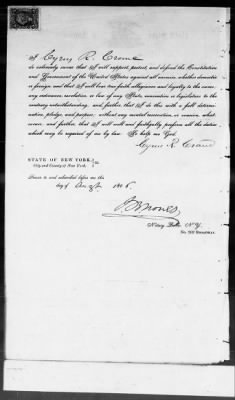 I Cyrus R. Crane
do solemnly swear that I will support, protect and defend the Constitution
and Government of the United States against all enemies, whether domestic
or foreign and that I will bear true faith allegiance and loyalty to the same,
any ordinance, resolution or law of any State convention or legislature to the
contrary notwithstanding, and further, that I do this with a full determi-
nation, pledge, and purpose, without any mental reservation or evasion what-
soever, and further that I will well and faithfully perform all the duties
which may be required of me by law. So help me God.
Cyrus R. Crane
STATE OF NEW YORK, } ss.
City and County of New York,
Sworn to and subscribed before me this
day of August 186
Jones
Notary Public N.Y.
BROADWAY.